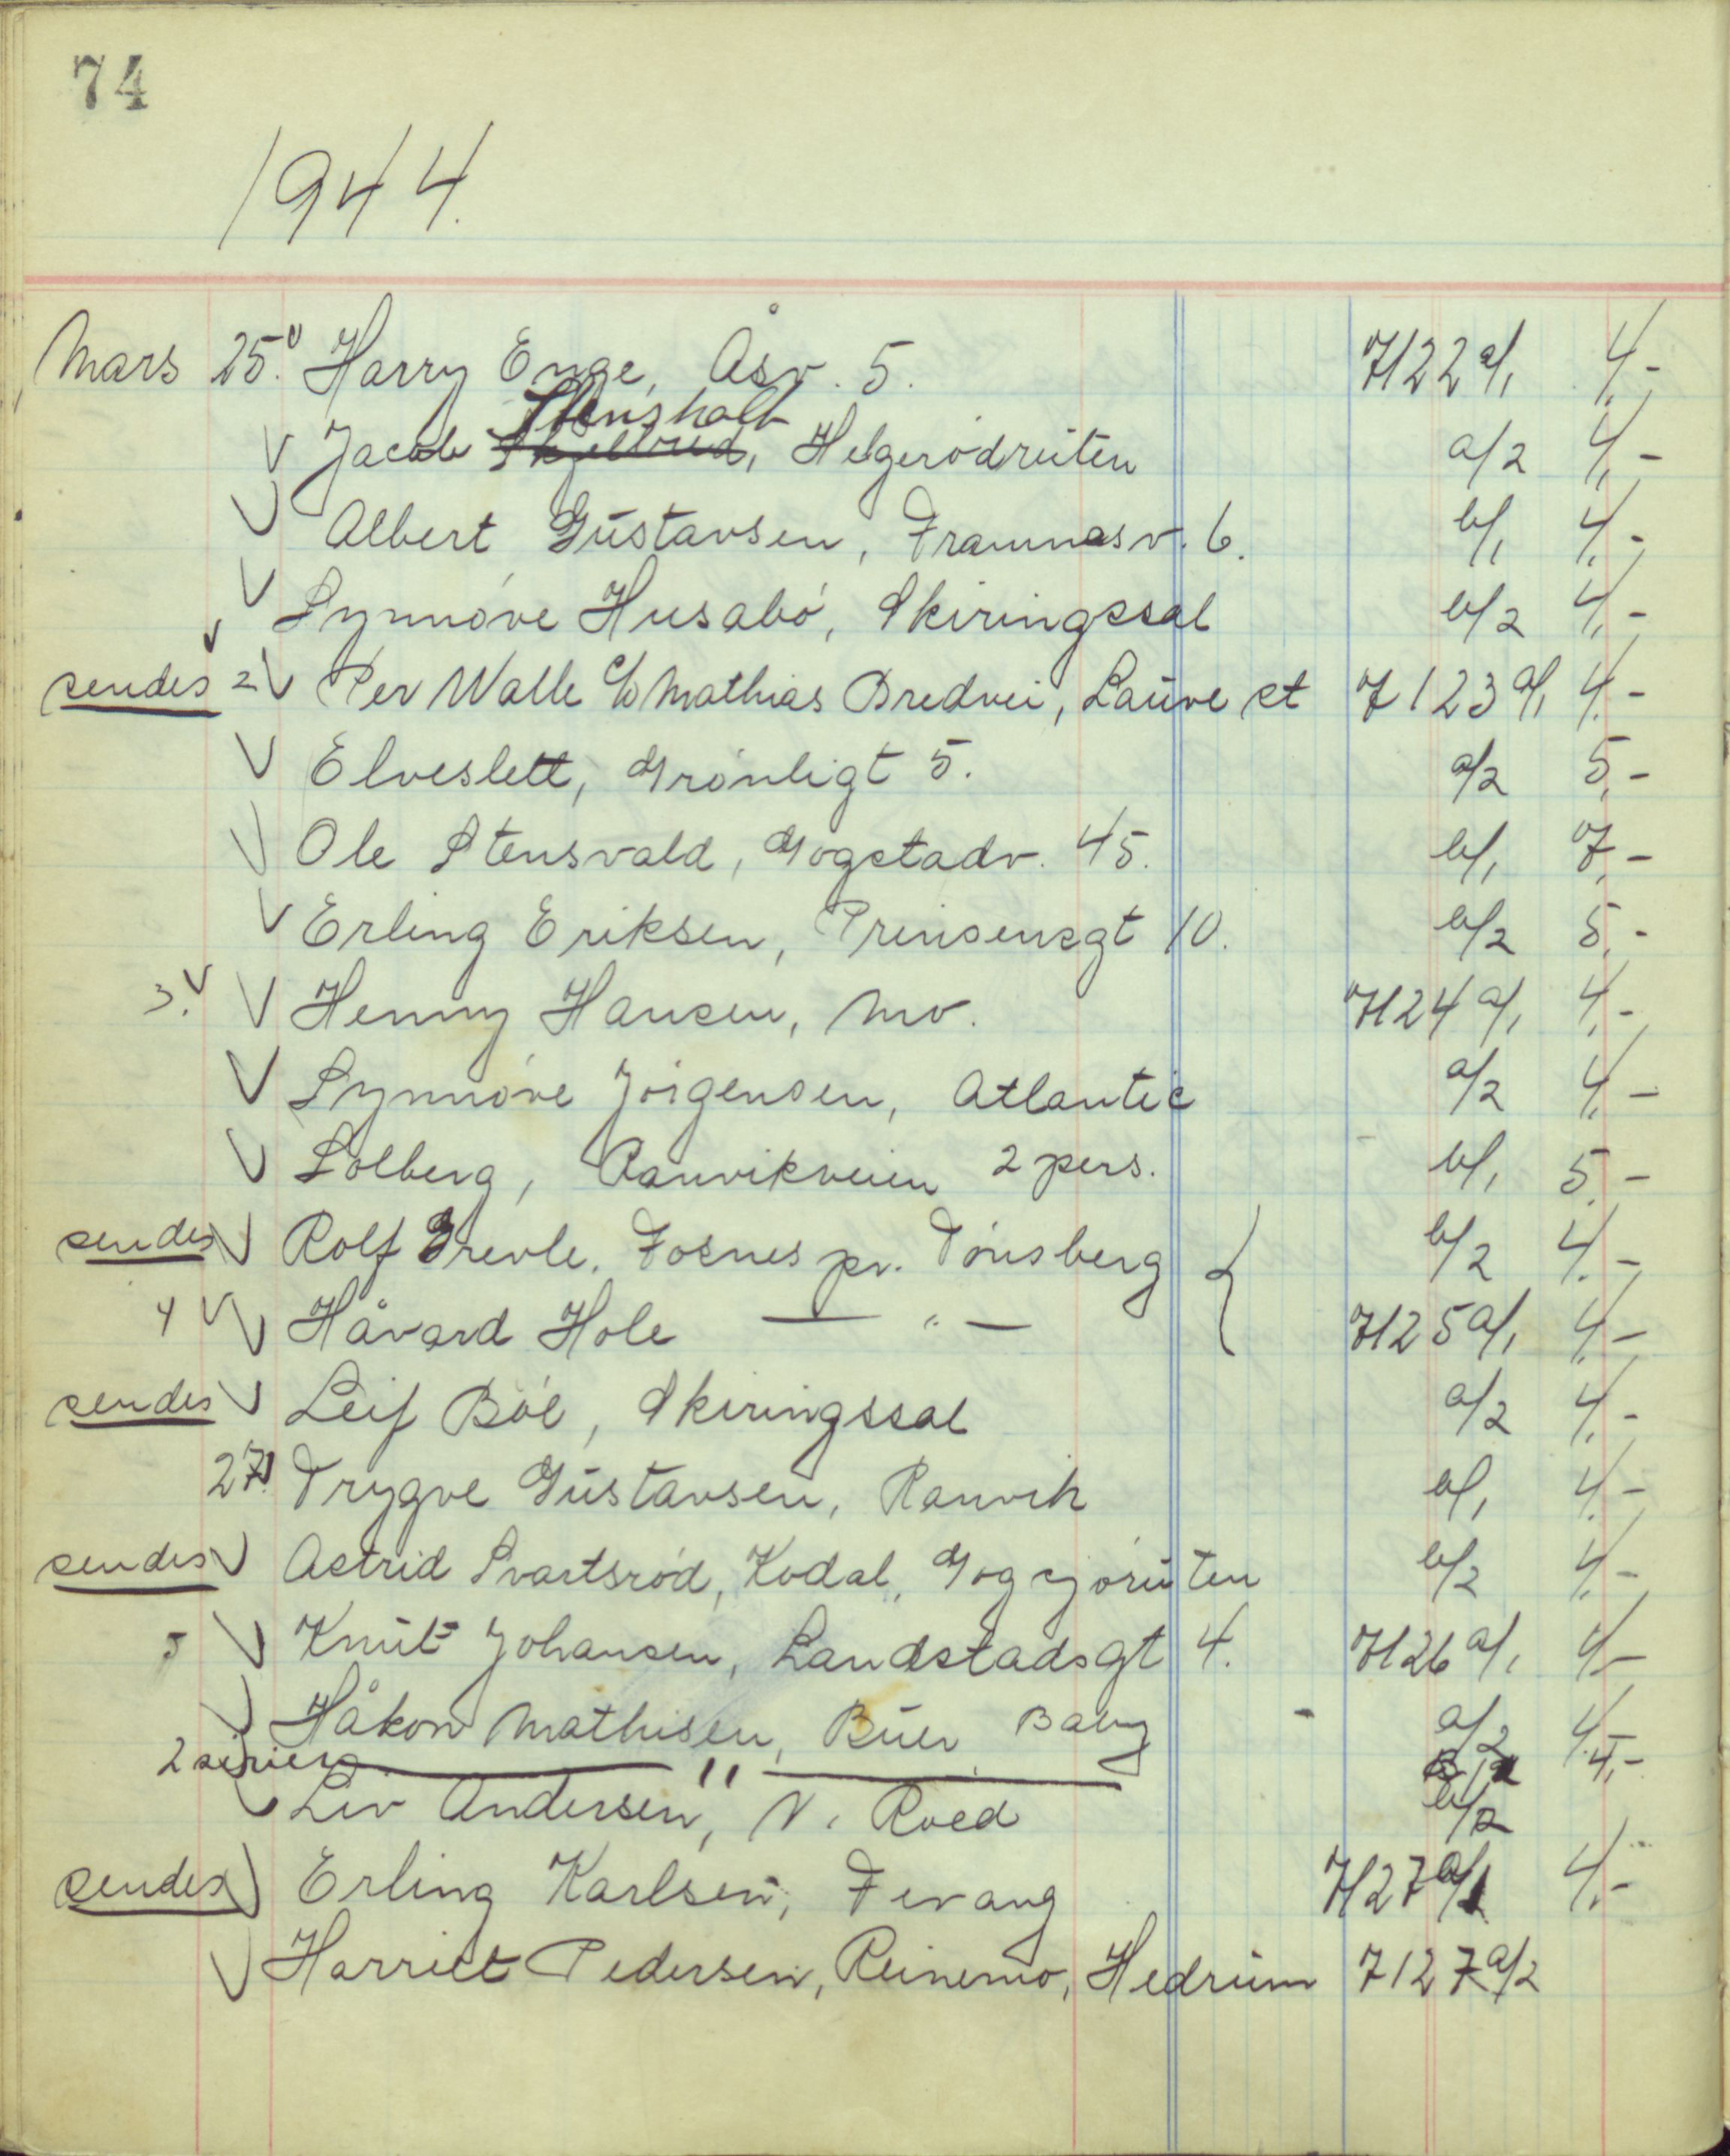 74
1944.
Mars 25. Harry Enge, Åsv. 5. 7122 a/1 4,-
Stensholt
Jacob Skjellred, Helgerødruten a/2 4,-
Albert Gustavsen, Framnesv. 6. b/1 4,-
Synnøve Husabø, Skiringssal b/2 4,-
sendes 2 Per Walle c/o Mathias Bredvei, Lauve st 7123 a/1 4,-
Elveslett, Grønligt 5. a/2 5,-
Ole Stensvald, Gogstadv. 45. b/1 7,-
Erling Eriksen, Prinsensgt 10. b/2 5,-
3. Henny Hansen, Mo. 7124 a/1 4,-
Synnøve Jørgensen, Atlantic a/2 4,-
Solberg, Ranvikveien 2 pers. b/1 5,-
sendes Rolf Grevle, Fosnes pr. Tønsberg b/2 4,-
4 Håvard Hole — " — 7125 a/1 4,-
sendes Leif Bøe, Skiringssal a/2 4,-
27. Trygve Gustavsen, Ranvik b/1 4,-
sendes Astrid Svartsrød, Kodal, Gogsjøruten b/2 4,-
5 Knut Johansen, Landstadsgt 4. 7126 a/1 4,-
Håkon Mathisen, Buer Baby - a/2 4,-
2 serier — " — B/1 4,-
Liv Andersen, N. Roed b/2
sendes Erling Karlsen, Fevang 7127 a/1 4,-
Harriet Pedersen, Reinemo, Hedrum 7127 a/2